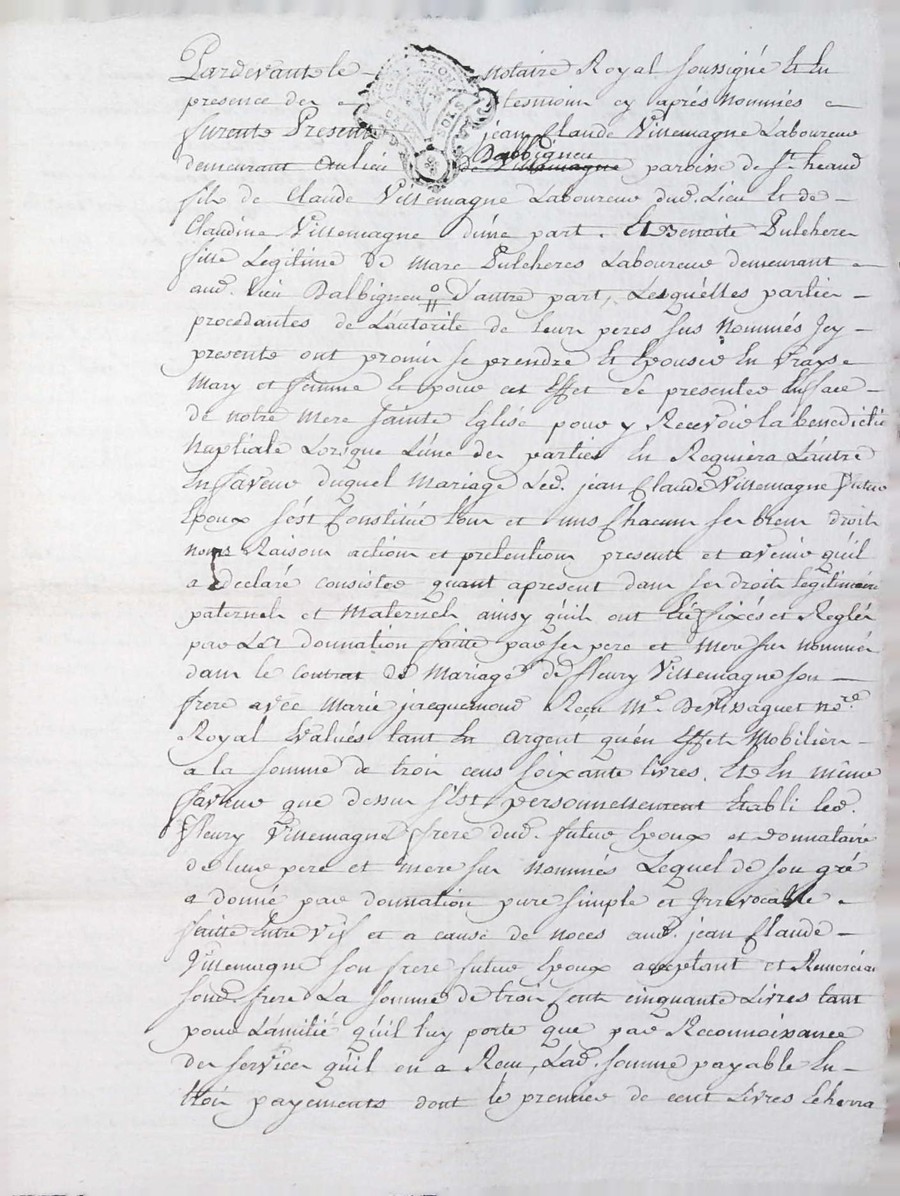 Pardevant le notaire Royal soussigné Et En
presence des temoins cy aprés Nommés
furent Presents jean Claude Villemagne Laboureur
Dalbigneu
demeurant Aulieu de Villemagne paroisse de St heand
fils de Claude Villemagne Laboureur dud. Lieu Et de
Claudine Villemagne d'une part. Et Benoite Pulchere
fille Legitime de Marc Pulcheres Laboureur demeurant
aud. lieu Dalbigneu D'autre part, Lesquelles parties
procedantes de L'autorité de leurs peres sus Nommés Icy
presents ont promis se prendre Et Epouser En Vrays
Mary et femme Et pour cet Effet se presenter En face
de notre mere sainte Eglise pour y Recevoir la benedictio
Nuptiale Lorsque L'une des parties En Requiera L'autre
En faveur duquel Mariage Led. jean Claude Villemagne futur
Epoux s'est Constitué tous et uns Chacuns ses biens droits
noms Raisons actions et pretentions presents et avenir qu'il
a declaré consister quant apresent dans ses droits legitimaires
paternels et Maternels ainsy qu'ils ont été fixés et Reglés
par La donnation faitte par ses pere et Mere sus nommés
dans le Contrat de Mariage de fleury Villemagne son
frere avec Marie jacquemond Reçu Me. Devissaguet nore.
Royal Evalués tant En argent qu'en Effets Mobiliers
a la somme de trois cens soixante livres. Et En même
faveur que dessus s'est personnellement Etabli led.
fleury Villemagne frere dud. futur Epoux et donnataire
de leur pere et mere sus nommés Lequel de son gré
a donné par donnation pure simple et Irrevocable
faitte Entre Vifs et a cause de noces aud. jean Claude
Villemagne son frere futur Epoux acceptant et Remercian
sond. frere La somme de trois cents cinquante Livres tant
pour L'amitié qu'il luy porte que par Reconnoissance
des services qu'il en a Reçu, Lad. somme payable En
trois payements dont le premier de cent Livres Echerra